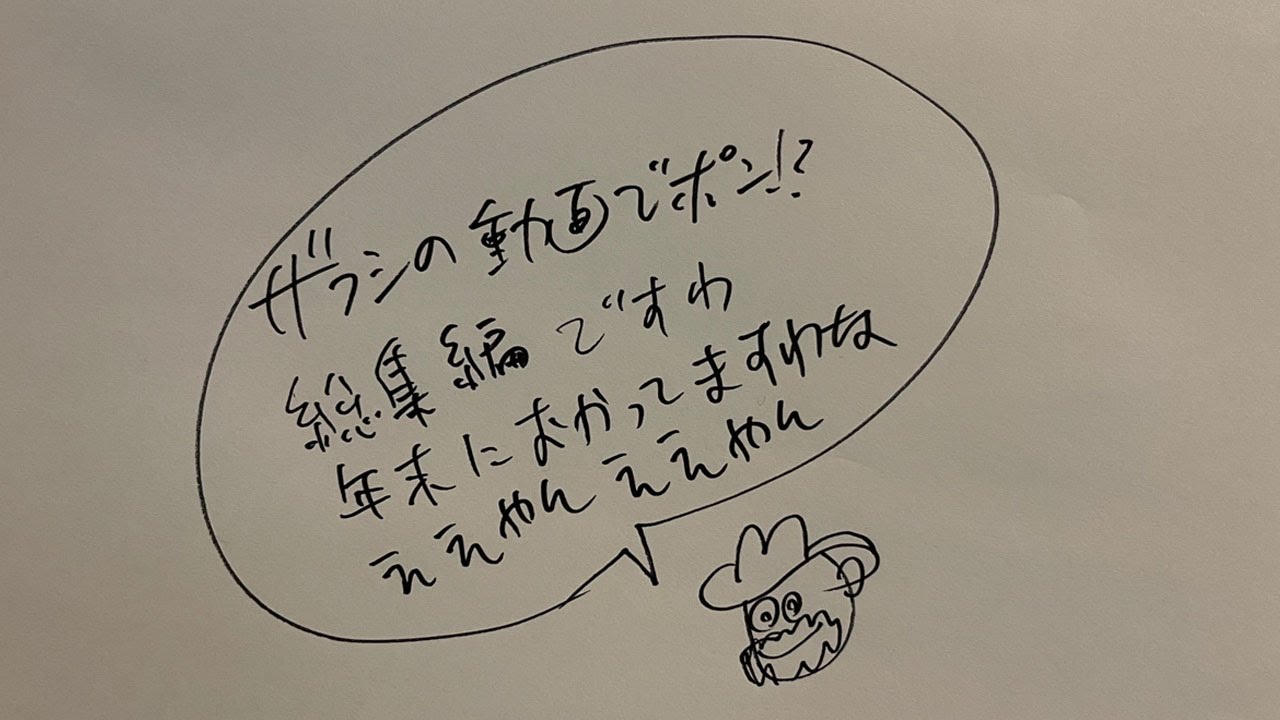 ザラシの動画でポン!?
総集編ですわ
年末におかってますわな
ええやんええやん